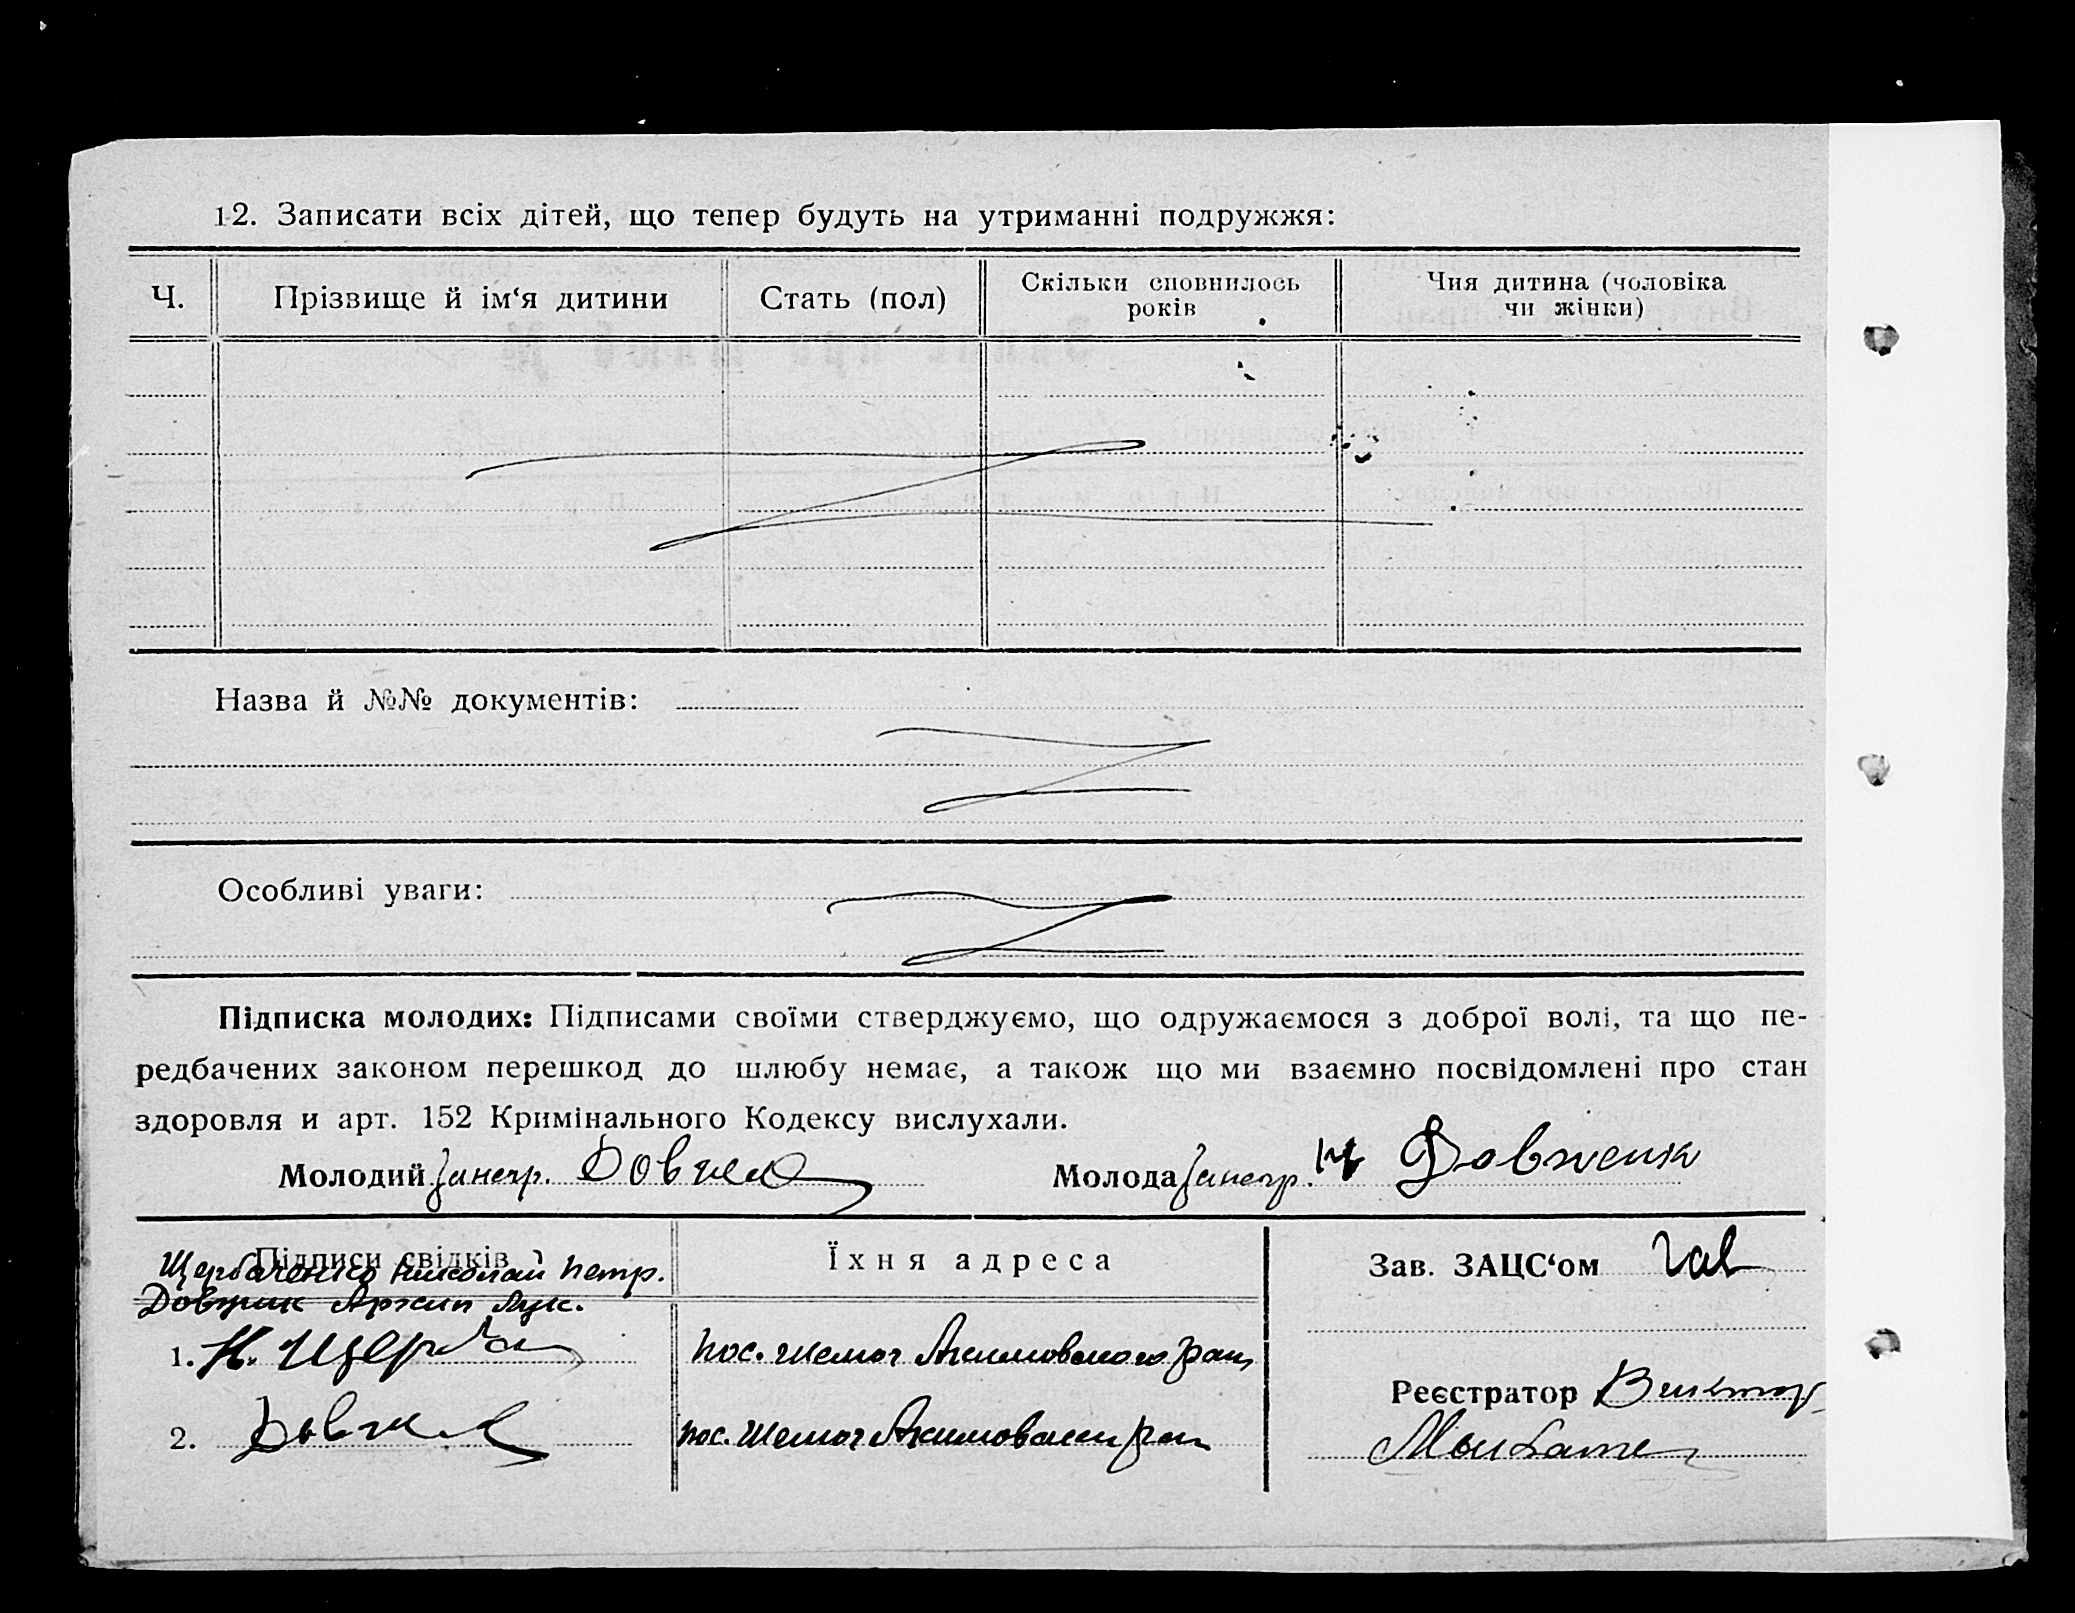 12. Записати всіх дітей, що тепер будуть на утриманні подружжя:
Ч.
Прізвище й ім‘я дитини
Стать (пол)
Скільки сповнилось
років
Чия дитина (чоловіка
чи жінки)
Назва й №№ документів:
Особливі уваги:
Підписка молодих: Підписами своїми стверджуємо, що одружаємося з доброї волі, та що пе-
редбачених законом перешкод до шлюбу немає, а також що ми взаємно посвідомлені про стан
здоровля и арт. 152 Кримінального Кодексу вислухали.
Молодий
Молода
Підписи свідків
Щербаченко Николай Петр.
Архип Лук.
1. Н. Щерба
2.
Їхня адреса
пос. Акимовского рай
пос. рай
Зав. ЗАЦС‘ом
Реєстратор